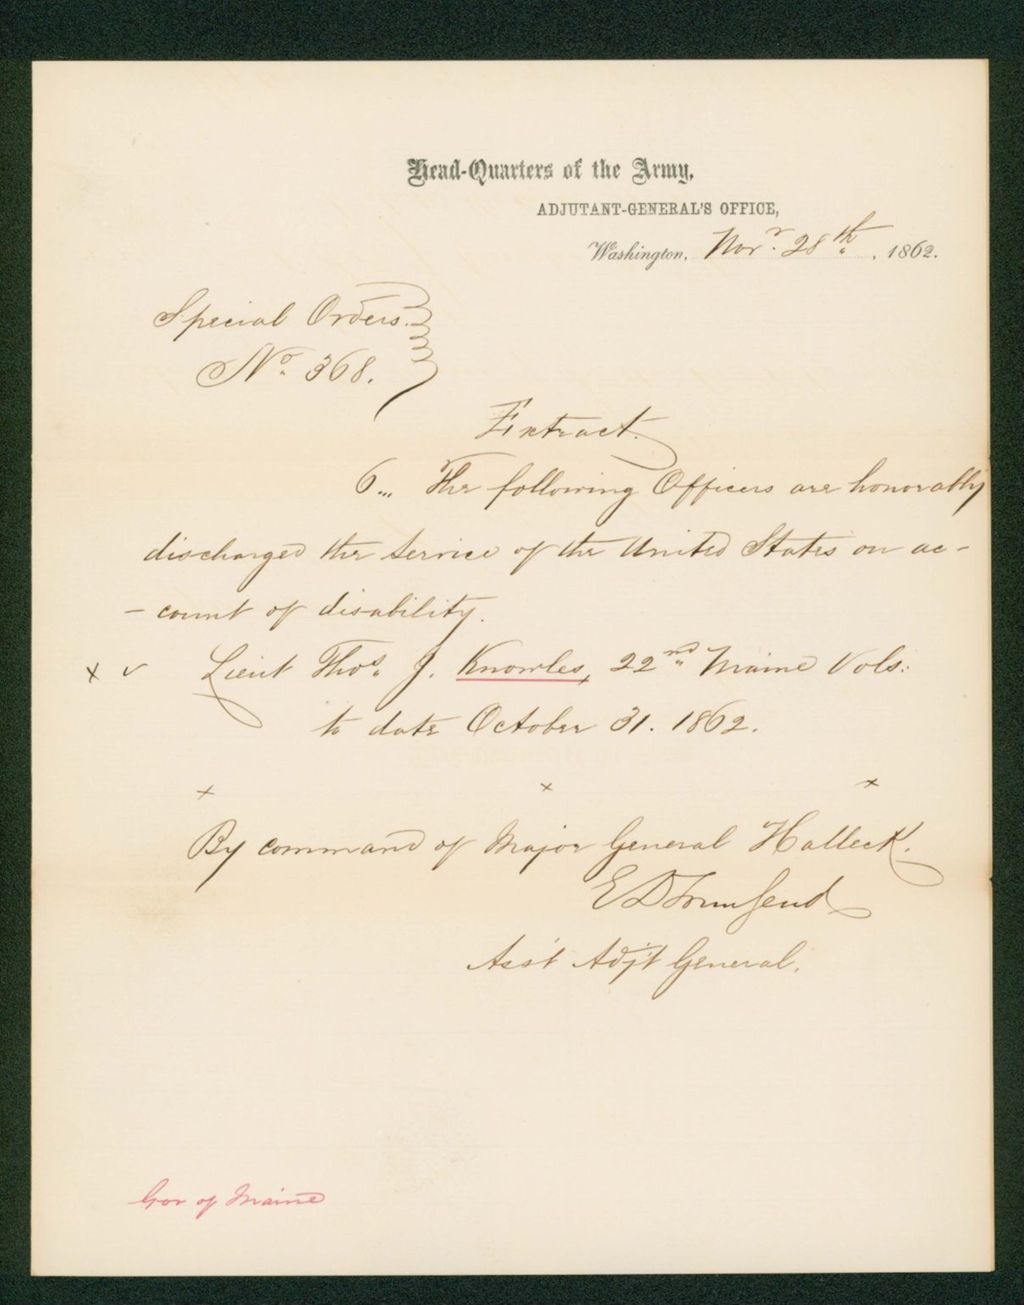 Head-Quarters of the Army,
ADJUTANT-GENERAL'S OFFICE,
Washington, Novr. 28th, 1862.
Special Orders.
No. 368.
Extract.
6... The following Officers are honorably
discharged the service of the United States on ac-
-count of disability.
x ✓ Lieut Thos. J. Knowles, 22nd Maine Vols:
to date October 31. 1862.
x x x
By command of Major General Halleck.
E D Townsend
Ass't Adj't General.
Gov of Maine